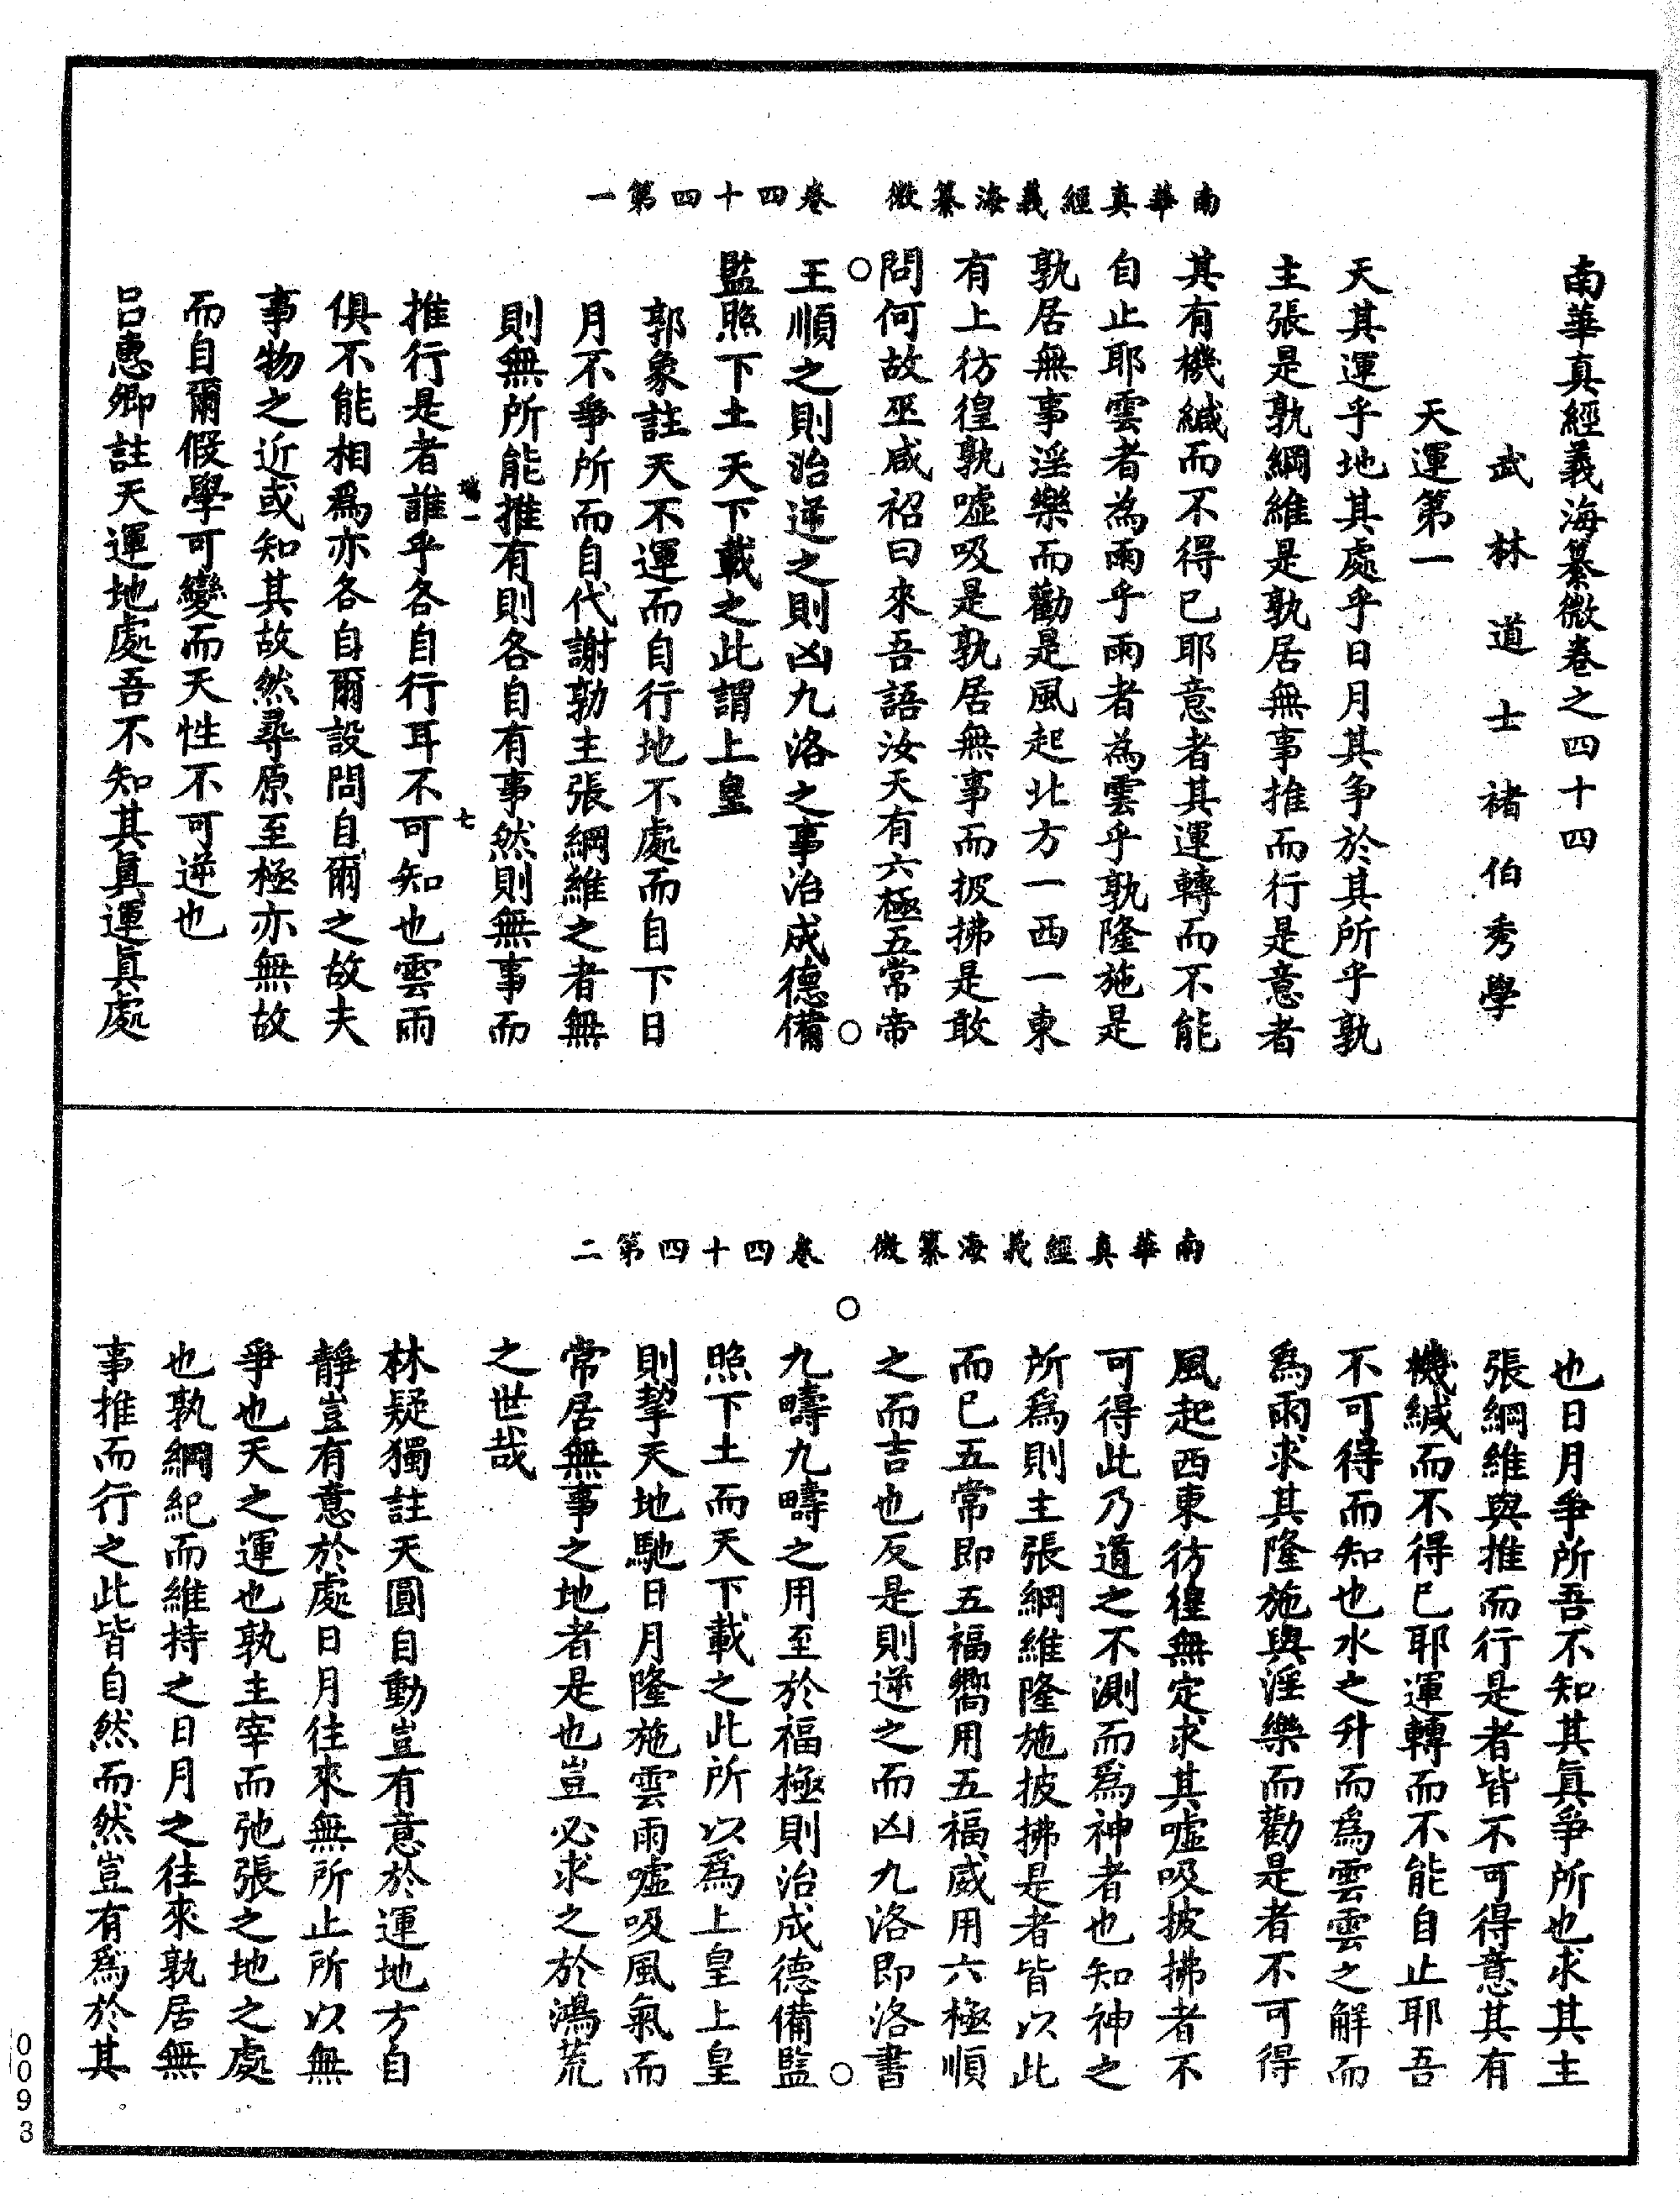 南華真經義海纂微　卷四十四第一
南華真經義海纂微卷之四十四
武林道士褚伯秀學
天運第一
天其運乎地其處乎日月其争於其所乎孰
主張是孰綱維是孰居無事推而行是意者
其有機緘而不得已耶意者其運轉而不能
自止耶雲者為雨乎雨者為雲乎孰隆施是
孰居無事淫樂而勸是風起北方一西一東
有上彷徨孰噓吸是孰居無事而披拂是敢
問何故巫咸祒曰來吾語汝天有六極五常帝
王順之則治逆之則凶九洛之事治成德備
監照下土天下載之此謂上皇
郭象註天不運而自行地不處而自下日
月不爭所而自代謝孰主張綱維之者無
則無所能推有則各自有事然則無事而
推行是者誰乎各自行耳不可知也雲雨
俱不能相爲亦各自爾設問自爾之故夫
事物之近或知其故然尋原至極亦無故
而自爾假學可變而天性不可逆也
呂惠卿註天運地處吾不知其眞運眞處
一
七
南華真經義海纂微　卷四十四第二
也日月爭所吾不知其眞爭所也求其主
張綱維與推而行是者皆不可得意其有
機緘而不得已耶運轉而不能自止耶吾
不可得而知也水之升而爲雲雲之解而
爲雨求其隆施與淫樂而勸是者不可得
風起西東彷徨無定求其噓吸披拂者不
可得此乃道之不測而爲神者也知神之
所爲則主張綱維隆施披拂是者皆以此
而已五常即五福嚮用五福威用六極順
之而吉也反是則逆之而凶九洛即洛書
九疇九疇之用至於福極則治成德備監
照下土而天下載之此所以爲上皇上皇
則挈天地馳日月隆施雲雨噓吸風氣而
常居無事之地者是也豈必求之於鴻荒
之世哉
林疑獨註天圓自動豈有意於運地方自
靜豈有意於處日月往來無所止所以無
爭也天之運也孰主宰而弛張之地之處
也孰綱紀而維持之日月之往來孰居無
事推而行之此皆自然而然豈有爲於其
0093